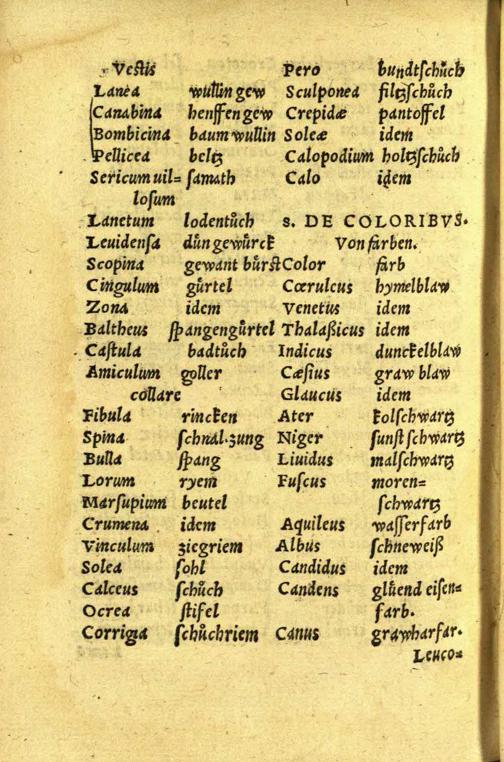 Vestis
Lanea wullin gew
Canabina henffen gew
Bombicina baum wullin
Pellicea beltz
Sericum uil= samath
losum
Lanetum lodentůch
Leuidensa dün gewürck
Scopina gewant bürst
Cingulum gürtel
Zona idem
Baltheus spangengürtel
Castula badtůch
Amiculum goller
collare
Fibula rincken
Spina schnal.zung
Bulla spang
Lorum ryem
Marsupium beutel
Crumena idem
Vinculum ziegriem
Solea sohl
Calceus schůch
Ocrea stifel
Corrigia schůchriem
Pero bundtschůch
Sculponea filtzschůch
Crepidæ pantoffel
Soleæ idem
Calopodium holtzschůch
Calo idem
s. DE COLORIBVS.
Von farben.
Color farb
Cœrulcus hymelblaw
Venetus idem
Thalaßicus idem
Indicus dunckelblaw
Cæsius graw blaw
Glaucus idem
Ater kolschwartz
Niger sunst schwartz
Liuidus malschwartz
Fuscus moren=
schwartz
Aquileus wasserfarb
Albus schneweiß
Candidus idem
Candens glüend eisen=
farb.
Canus grawharfar.
Leuco=